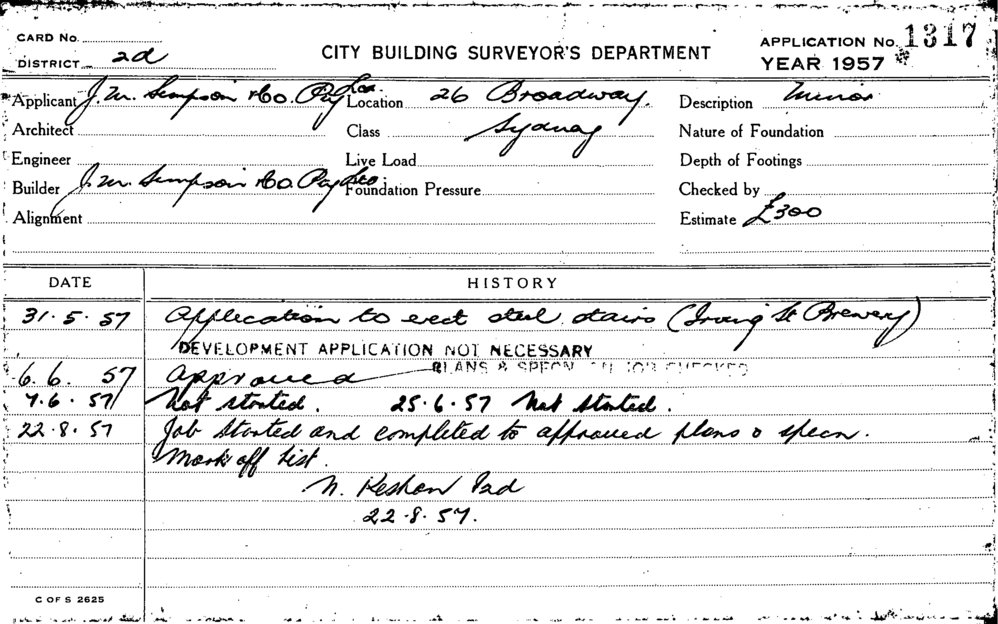 CARD No.
DISTRICT 2d
CITY BUILDING SURVEYOR'S DEPARTMENT
APPLICATION No. 1317
YEAR 1957
Applicant J. W. Simpson & Co. Pty Ltd. Location 26 Broadway. Description Minor
Architect Class Sydney Nature of Foundation
Engineer Live Load Depth of Footings
Builder J. W. Simpson & Co. Pty Ltd. Foundation Pressure Checked by
Alignment Estimate £300
DATE HISTORY
31.5.57 Application to erect steel stairs (Irving St Brewery)
DEVELOPMENT APPLICATION NOT NECESSARY
PLANS & SPECN ON JOB CHECKED
6.6.57 Approved
7.6.57 Not started. 25.6.57 Not started.
22.8.57 Job started and completed to approved plans & specn.
Mark off list.
22.8.57.
C OF S 2625